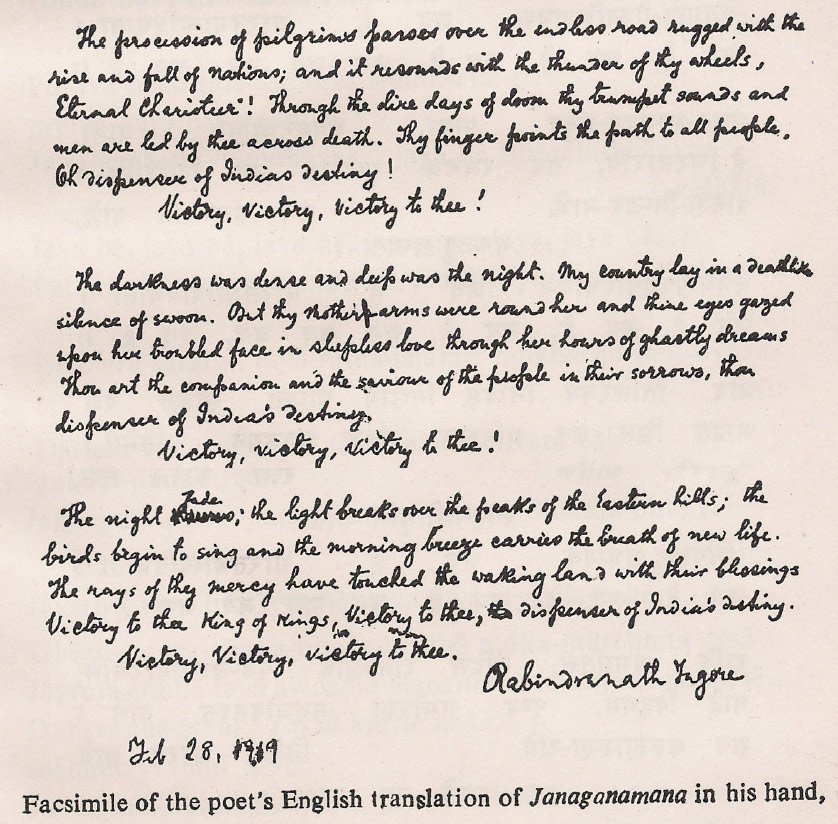 The procession of pilgrims passes over the endless road rugged with the
rise and fall of nations; and it resounds with the thunder of thy wheels,
Eternal Charioteer! Through the dire days of doom thy trumpet sounds and
men are led by thee across death. Thy finger points the path to all people,
Oh dispenser of Indias destiny!
Victory, victory, victory to thee!
The darkness was dense and deep was the night. My country lay in a deathlike
silence of swoon. But thy mother arms were round her and thine eyes gazed
upon her troubled face in sleepless love through her hours of ghastly dreams
Thou art the companion and the saviour of the people in their sorrows, thou
dispenser of India's destiny.
Victory, victory, victory to thee!
fade
The night ; the light breaks over the peaks of the Eastern hills; the
birds begin to sing and the morning breeze carries the breath of new life.
The rays of thy mercy have touched the waking land with their blessings
Victory to thee King of Kings, Victory to thee, dispenser of India's destiny.
Victory, Victory, victory to thee.
Rabindranath Tagore
Feb 28, 1919
Facsimile of the poet's English translation of Janaganamana in his hand,